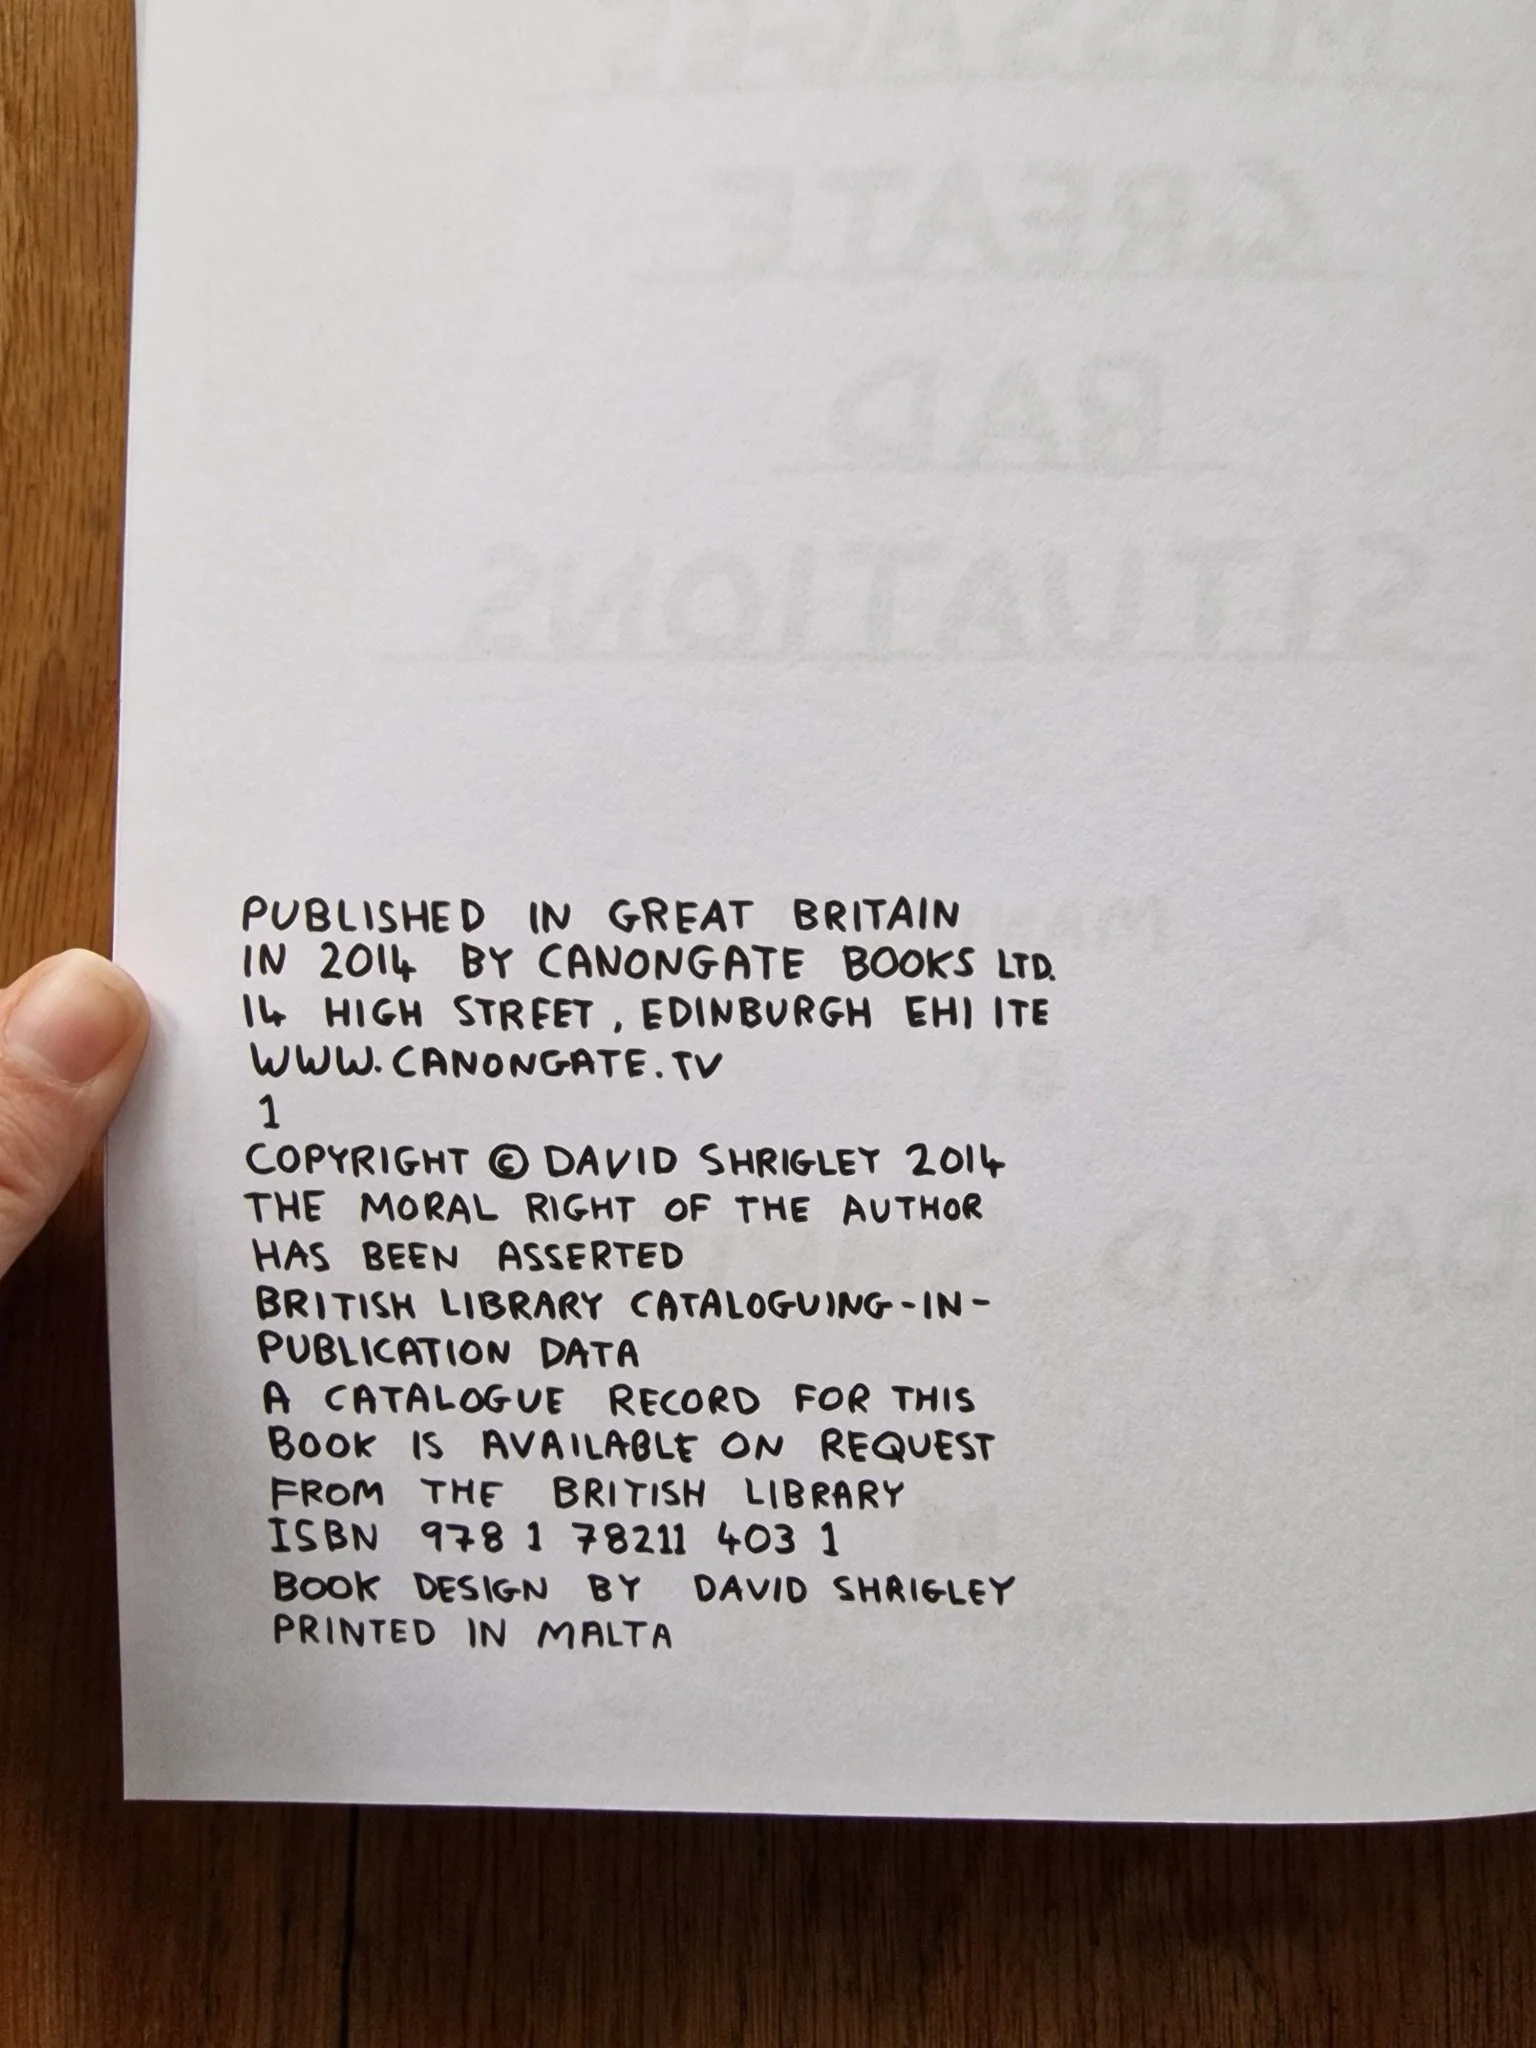 MESSAGES
CREATE
BAD
SITUATIONS
PUBLISHED IN GREAT BRITAIN
IN 2014 BY CANONGATE BOOKS LTD.
14 HIGH STREET, EDINBURGH EH1 1TE
WWW.CANONGATE.TV
1
COPYRIGHT © DAVID SHRIGLEY 2014
THE MORAL RIGHT OF THE AUTHOR
HAS BEEN ASSERTED
BRITISH LIBRARY CATALOGUING-IN-
PUBLICATION DATA
A CATALOGUE RECORD FOR THIS
BOOK IS AVAILABLE ON REQUEST
FROM THE BRITISH LIBRARY
ISBN 978 1 78211 403 1
BOOK DESIGN BY DAVID SHRIGLEY
PRINTED IN MALTA